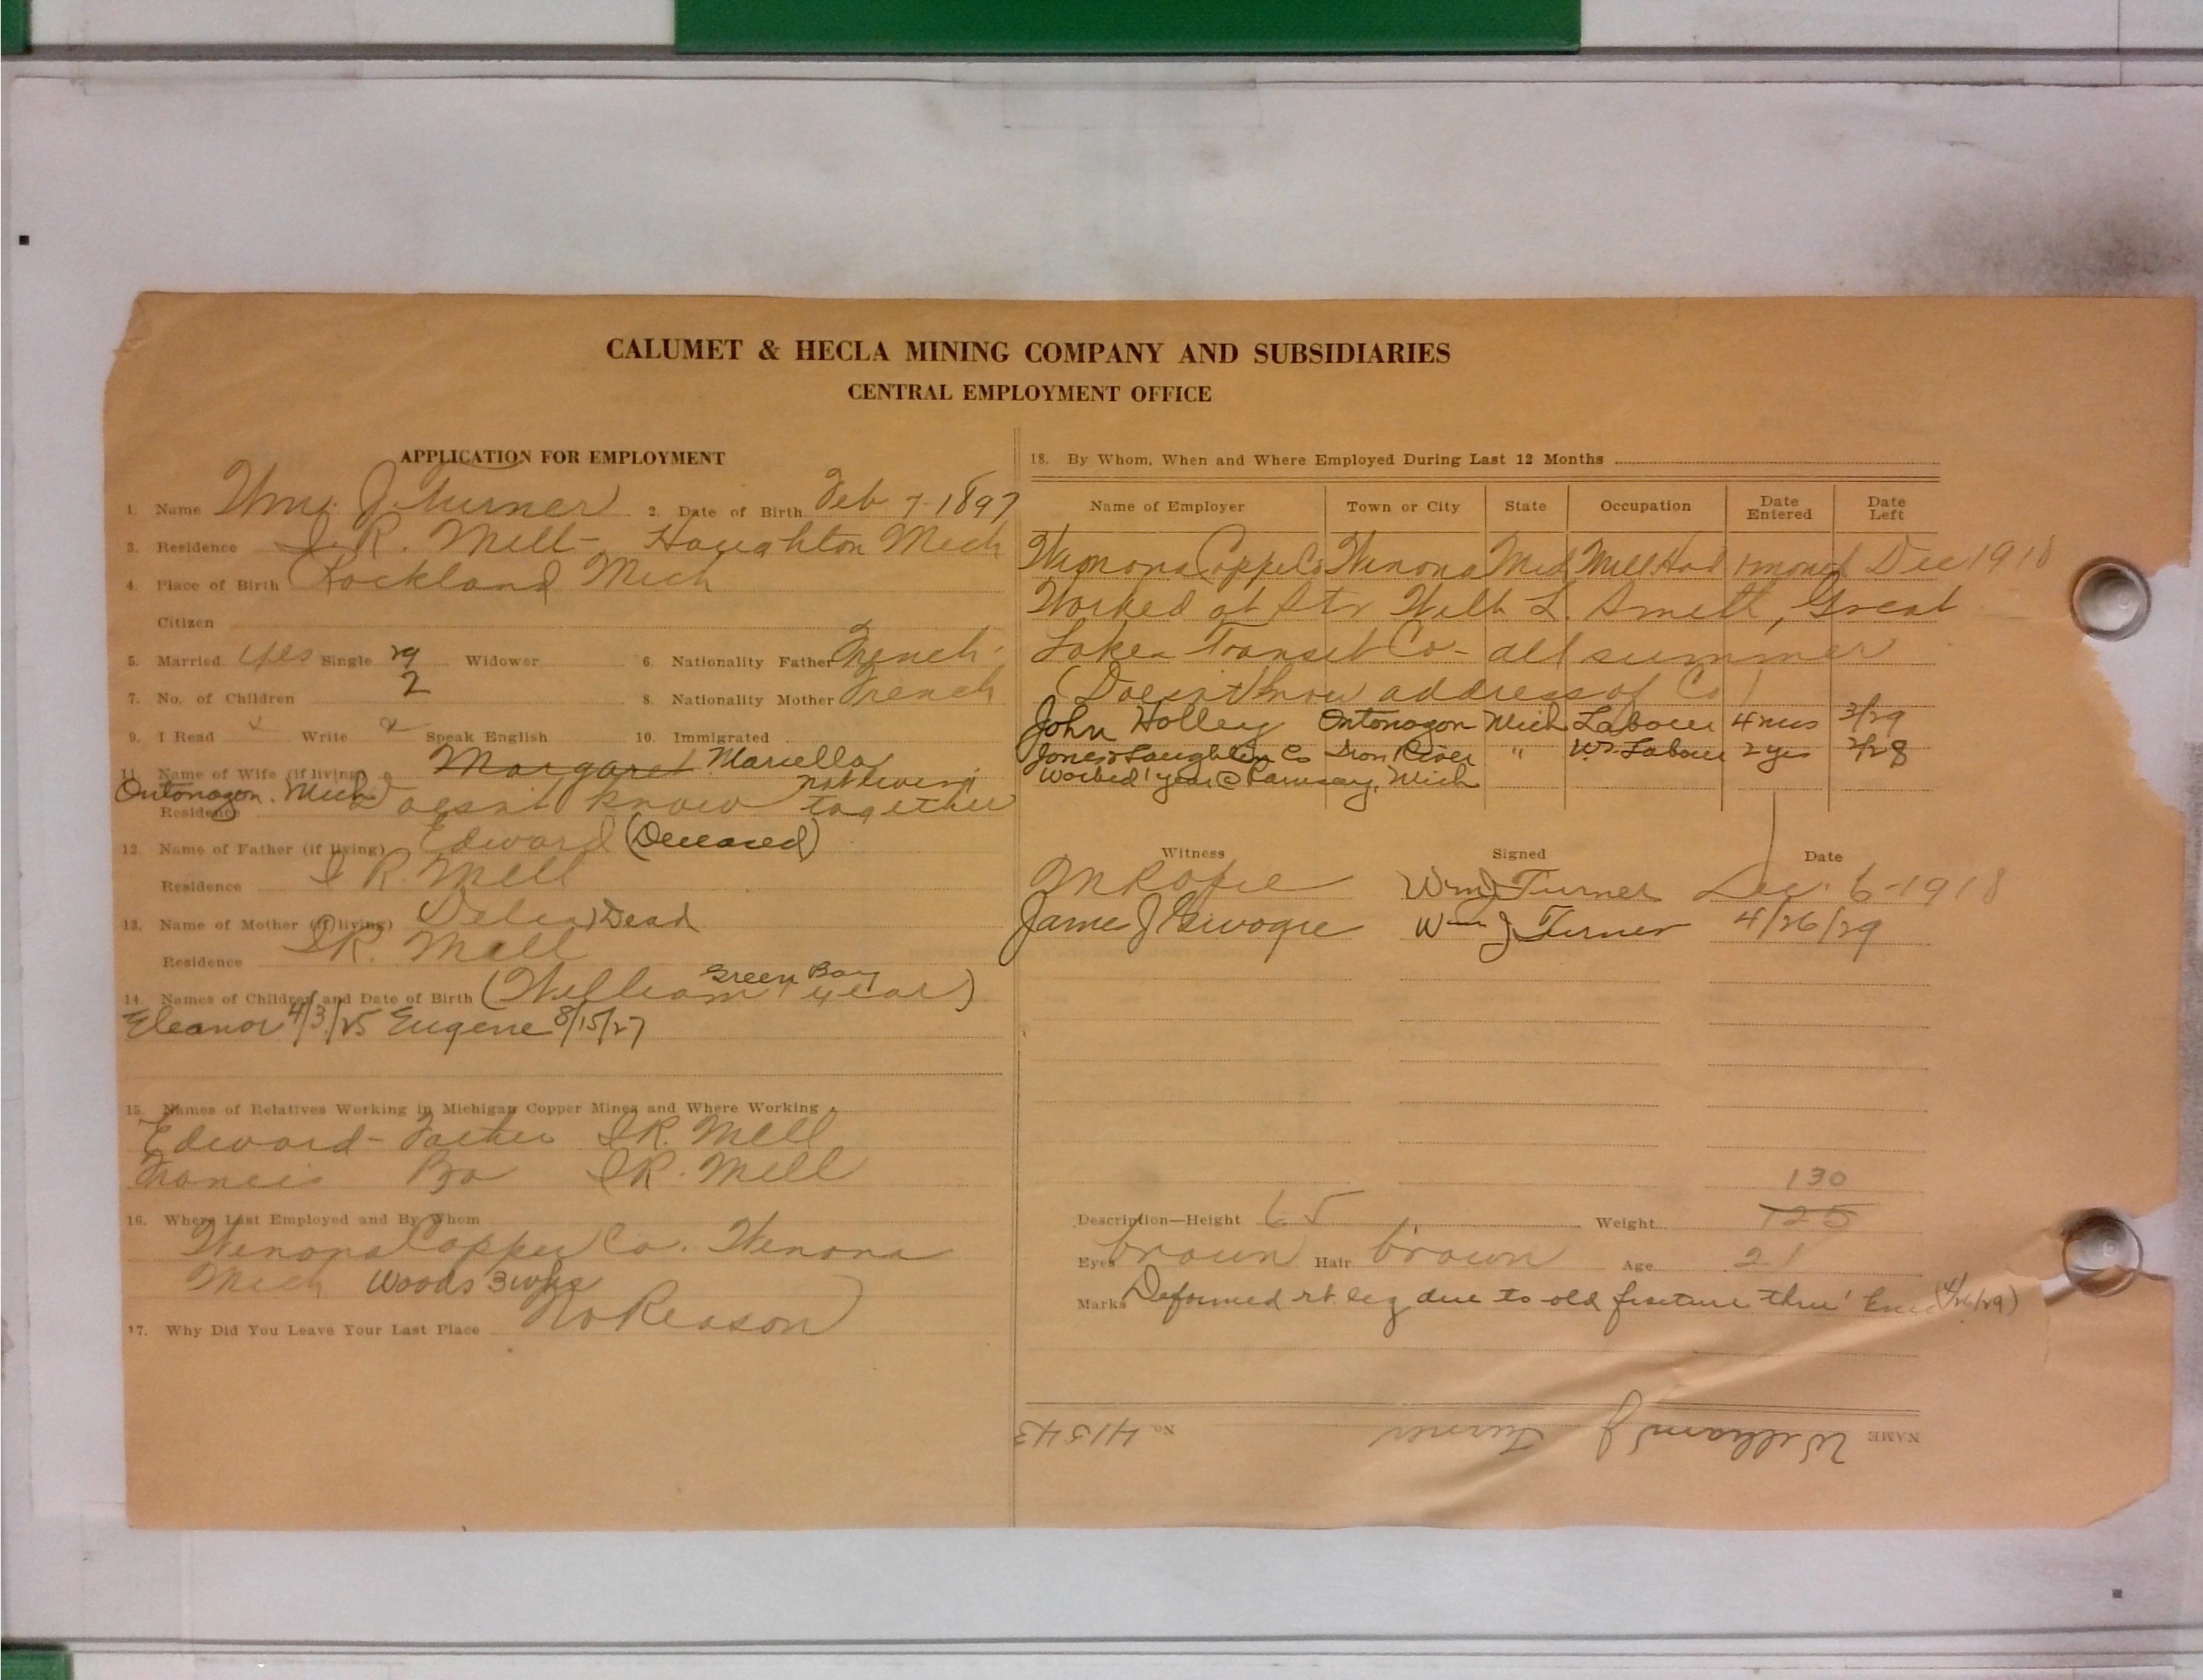 CALUMET & HECLA MINING COMPANY AND SUBSIDIARIES
CENTRAL EMPLOYMENT OFFICE
APPLICATION FOR EMPLOYMENT
1. Name Wm. J. Turner 2. Date of Birth Feb 7-1897
3. Residence I.R. Mill - Houghton Mich
4. Place of Birth Rockland Mich
Citizen
5. Married Yes Single 29 Widower 6. Nationality Father French
7. No. of Children 2 8. Nationality Mother French
9. I Read Write Speak English 10. Immigrated
11. Name of Wife (if living) Margaret Mariella
Ontonagon. Mich Doesn't know not living together
Residence
12. Name of Father (if living) Edward (Deceased)
Residence I R. Mill
13. Name of Mother (if living) Delia Dead
Residence I R. Mill
14. Names of Children and Date of Birth (William 1 year) Green Bay
Eleanor 4/3/25 Eugene 8/15/27
15. Names of Relatives Working in Michigan Copper Mines and Where Working
Edward - Father I R. Mill
Francis Bro I R. Mill
16. Where Last Employed and By Whom
Winona Copper Co. Winona
Mich Woods 3 wks
17. Why Did You Leave Your Last Place No Reason
18. By Whom, When and Where Employed During Last 12 Months
Name of Employer Town or City State Occupation Date Entered Date Left
Winona Copper Co Winona Mich Mill Hand 1 month Dec 1918
Worked at Str Will L. Smith, Great
Lakes Transit Co - all summer
(Doesn't know address of Co)
John Holley Ontonagon Mich Labour 4 mos 3/29
Jones & Laughlin Co Iron River " Labour 2 yrs 2/28
Worked 1 year @ Ramsay, Mich
Witness Signed Date
Wm J Turner Dec. 6-1918
James J Wm J Turner 4/26/29
130
Description—Height 65 Weight 125
Eyes brown Hair brown Age 21
Marks Deformed rt. leg due to old fracture thru' knee (4/26/29)
NAME William J Turner No. 41543